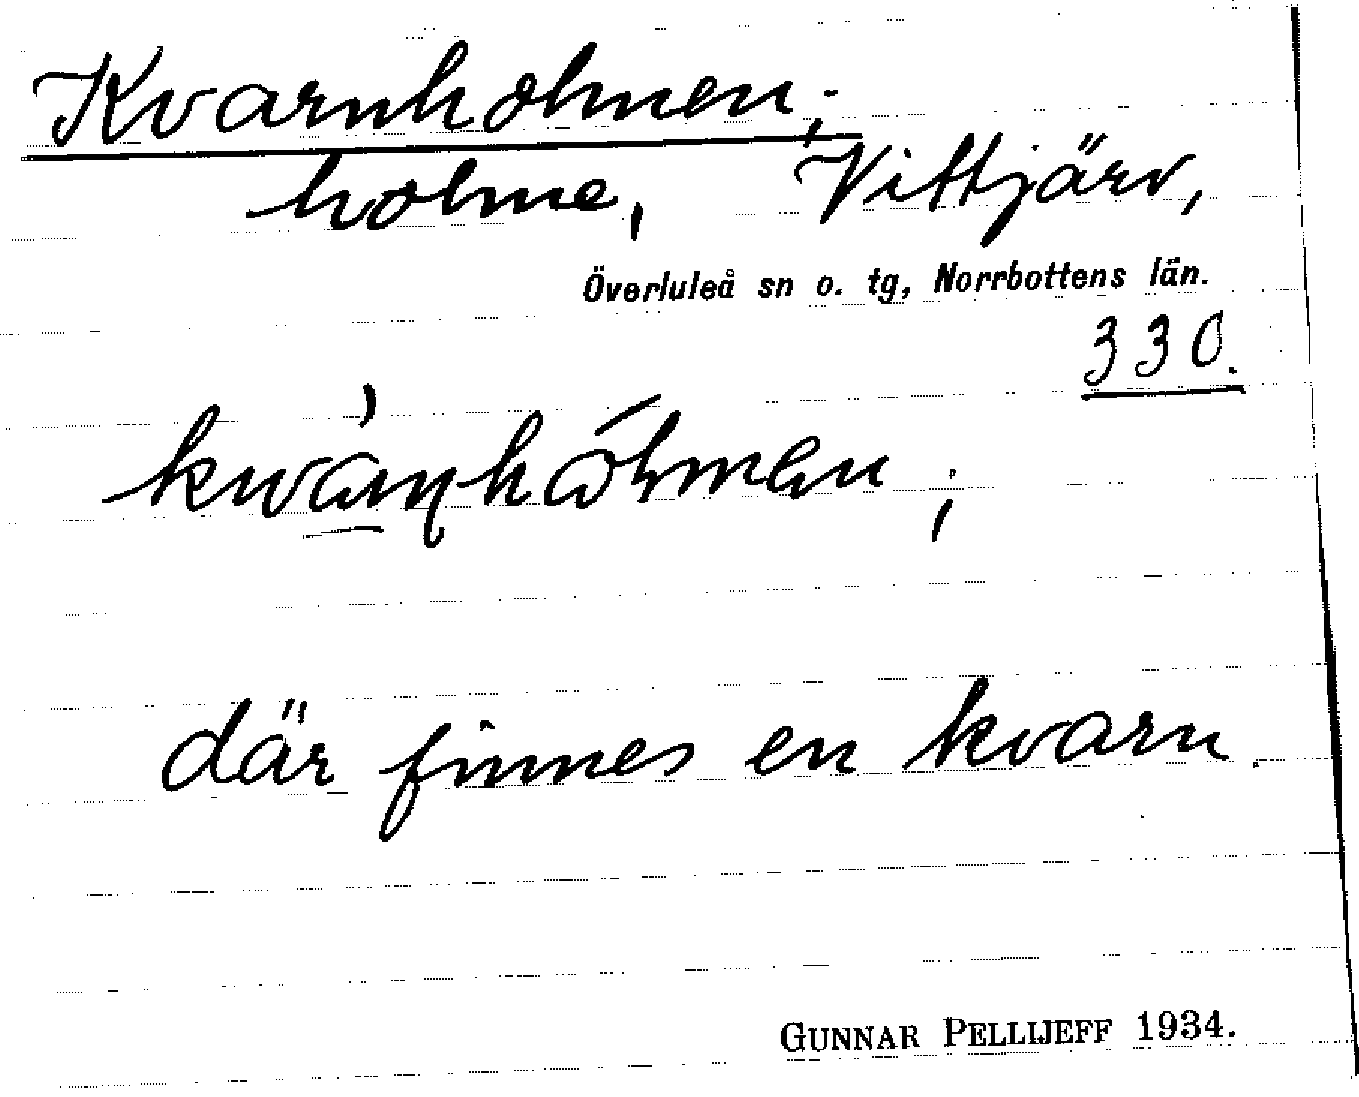 Kvarnholmen;
holme, Vittjärv,
Överluleå sn o. tg, Norrbottens län.
330.
där finnes en kvarn.
GUNNAR PELLIJEFF 1934.